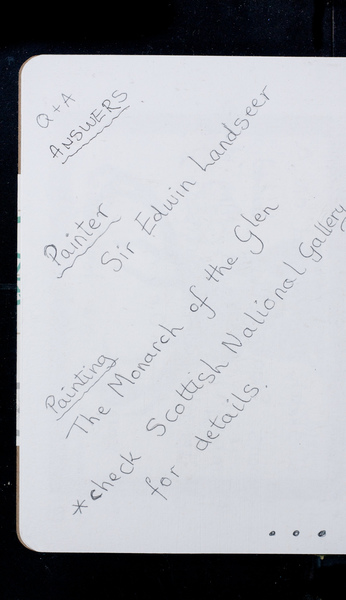 Q + A
ANSWERS
Painter
Sir Edwin Landseer
Painting
The Monarch of the Glen
*check Scottish National Gallery
for details.